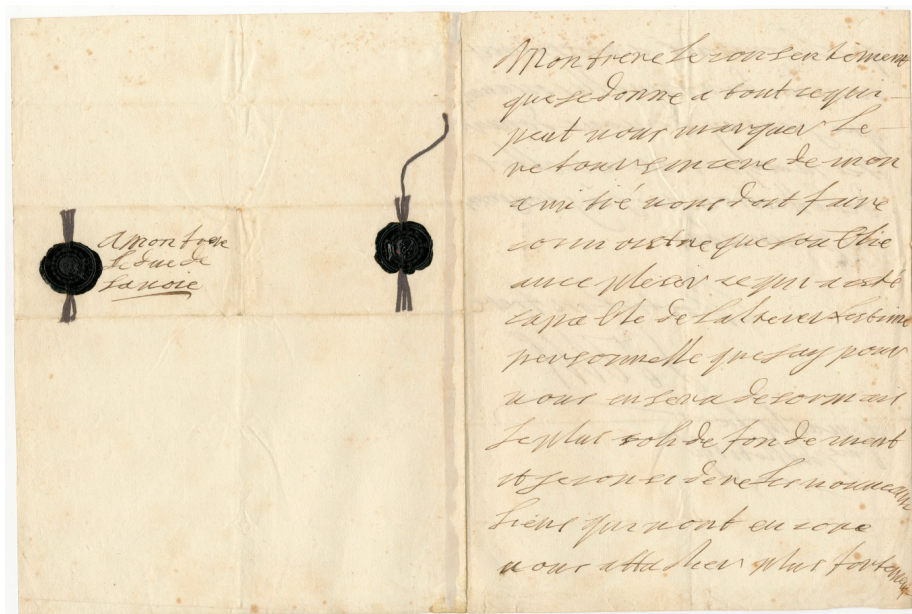 A mon frere
le duc de
savoie
Mon frere le consentement
que je donne a tout ce qui
peut vous marquer le
retour sincere de mon
amitié vous doit faire
connoistre que j'oublie
avec plesir ce qui a esté
capable de lalterer lestime
personnelle que jay pour
vous en sera desormais
le plus solide fondement
et je considere les nouveaux
liens qui vont encore
vous attacher plus fortement